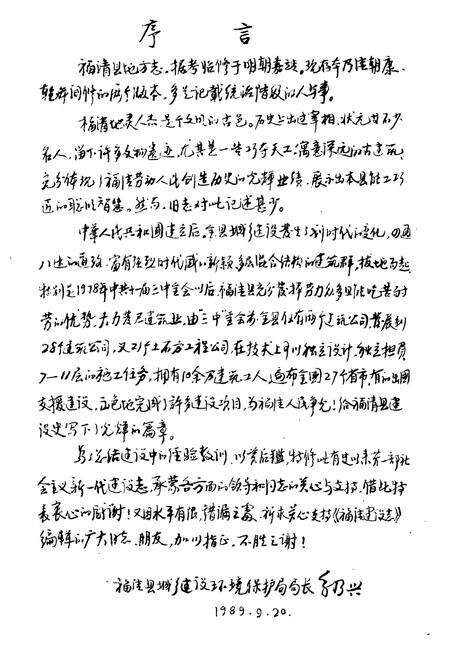 序言
福清县地方志。据考始修于明朝嘉靖。现存本乃清朝康、
乾年间修的两个版本，多是记载统治阶级的人与事。
福清地灵人杰是个文明的古邑。历史上出过宰相、状元等不少
名人，留下许多文物遗迹，尤其是一些巧夺天工、寓意深远的古建筑，
充分体现了福清劳动人民创造历史的光辉业绩，展示出本县能工巧
匠的聪明才智。然而，旧志对此记述甚少。
中华人民共和国建立后。全县城乡建设发生了划时代的变化，四通
八达的道路，富有强烈时代感的新颖、多层混合结构的建筑群，拔地而起。
特别是1978年中共十一届三中全会以后，福清县充分发挥劳力众多且能吃苦耐
劳的优势，大力发展建筑业，由"三中"全会前全县仅有两个建筑公司发展到
28个建筑公司，又21个土石方工程公司，在技术上可以独立设计、独立担负
7—11层的施工任务，拥有10余万建筑工人，遍布全国27个省市有的出国
支援建设，出色地完成了许多建设项目，为福清人民争光！给福清县建
设史写下了光辉的篇章。
为了总结建设中的经验教训，以前启后鉴，特修此有史以来第一部社
会主义新一代建设志，承蒙各方面的领导和同志的关心与支持，借此特
表衷心的感谢！又因水平有限，错漏之处，祈求关心支持《福清建设志》
编辑的广大同志、朋友，加以指正，不胜之谢！
福清县城乡建设环境保护局局长 乃兴
1989.9.20.